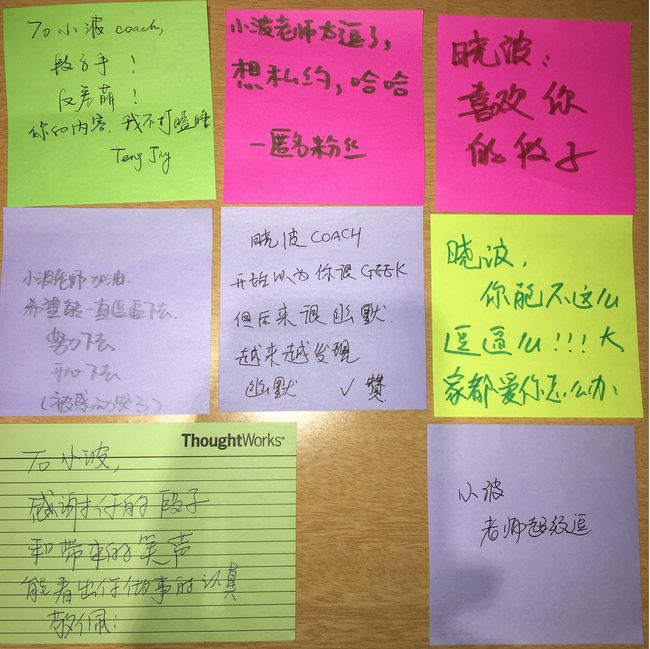 To 小波 coach,
段子手！
反差萌！
你的内容，我不打瞌睡
Teng Jiy
小波老师太逗了，
想私约，哈哈
—匿名粉丝
晓波：
喜欢你
的段子
小波老师加油
希望能一直逗逼下去
努力下去
开心下去
（被感动哭了）
晓波 COACH
开始以为你很GEEK
但后来很幽默
越来越发现
幽默 ✓ 赞
晓波，
你能不这么
逗逼么!!! 大
家都爱你怎么办
ThoughtWorks®
To 小波，
感谢你的段子
和带来的笑声
能看出你做事的认真
敬佩！
小波
老师超级逗